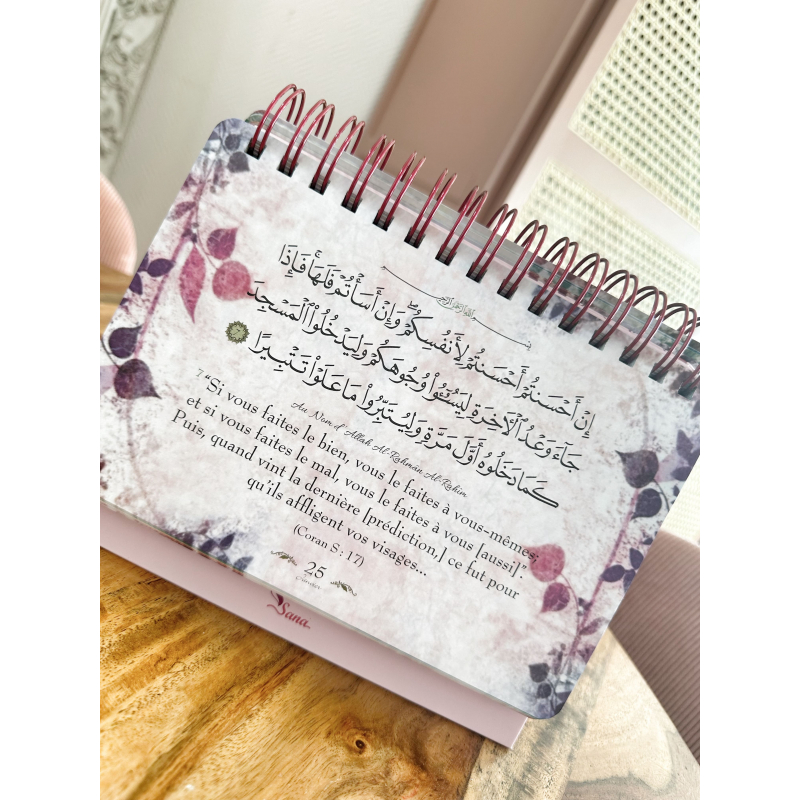 إِنْ أَحْسَنتُمْ أَحْسَنتُمْ لِأَنفُسِكُمْ ۖ وَإِنْ أَسَأْتُمْ فَلَهَا ۚ فَإِذَا
جَآءَ وَعْدُ ٱلْآخِرَةِ لِيَسُـۥٓـُٔوا۟ وُجُوهَكُمْ وَلِيَدْخُلُوا۟ ٱلْمَسْجِدَ
كَمَا دَخَلُوهُ أَوَّلَ مَرَّةٍ وَلِيُتَبِّرُوا۟ مَا عَلَوْا۟ تَتْبِيرًا
Au Nom d'Allah Al-Rahmân Al-Rahîm
7 “Si vous faites le bien, vous le faites à vous-mêmes;
et si vous faites le mal, vous le faites à vous [aussi]”.
Puis, quand vint la dernière [prédiction,] ce fut pour
qu'ils affligent vos visages...
(Coran S : 17)
25
Sana